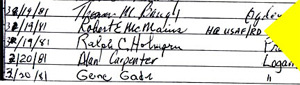 3/19/81 M. Baugh Ogden
3/19/81 Robert E. McManus HQ USAF/RD
3/19/81 Ralph C. Holmgren Pr
3/20/81 Alan Carpenter Logan
3/20/81 Gene Gade "